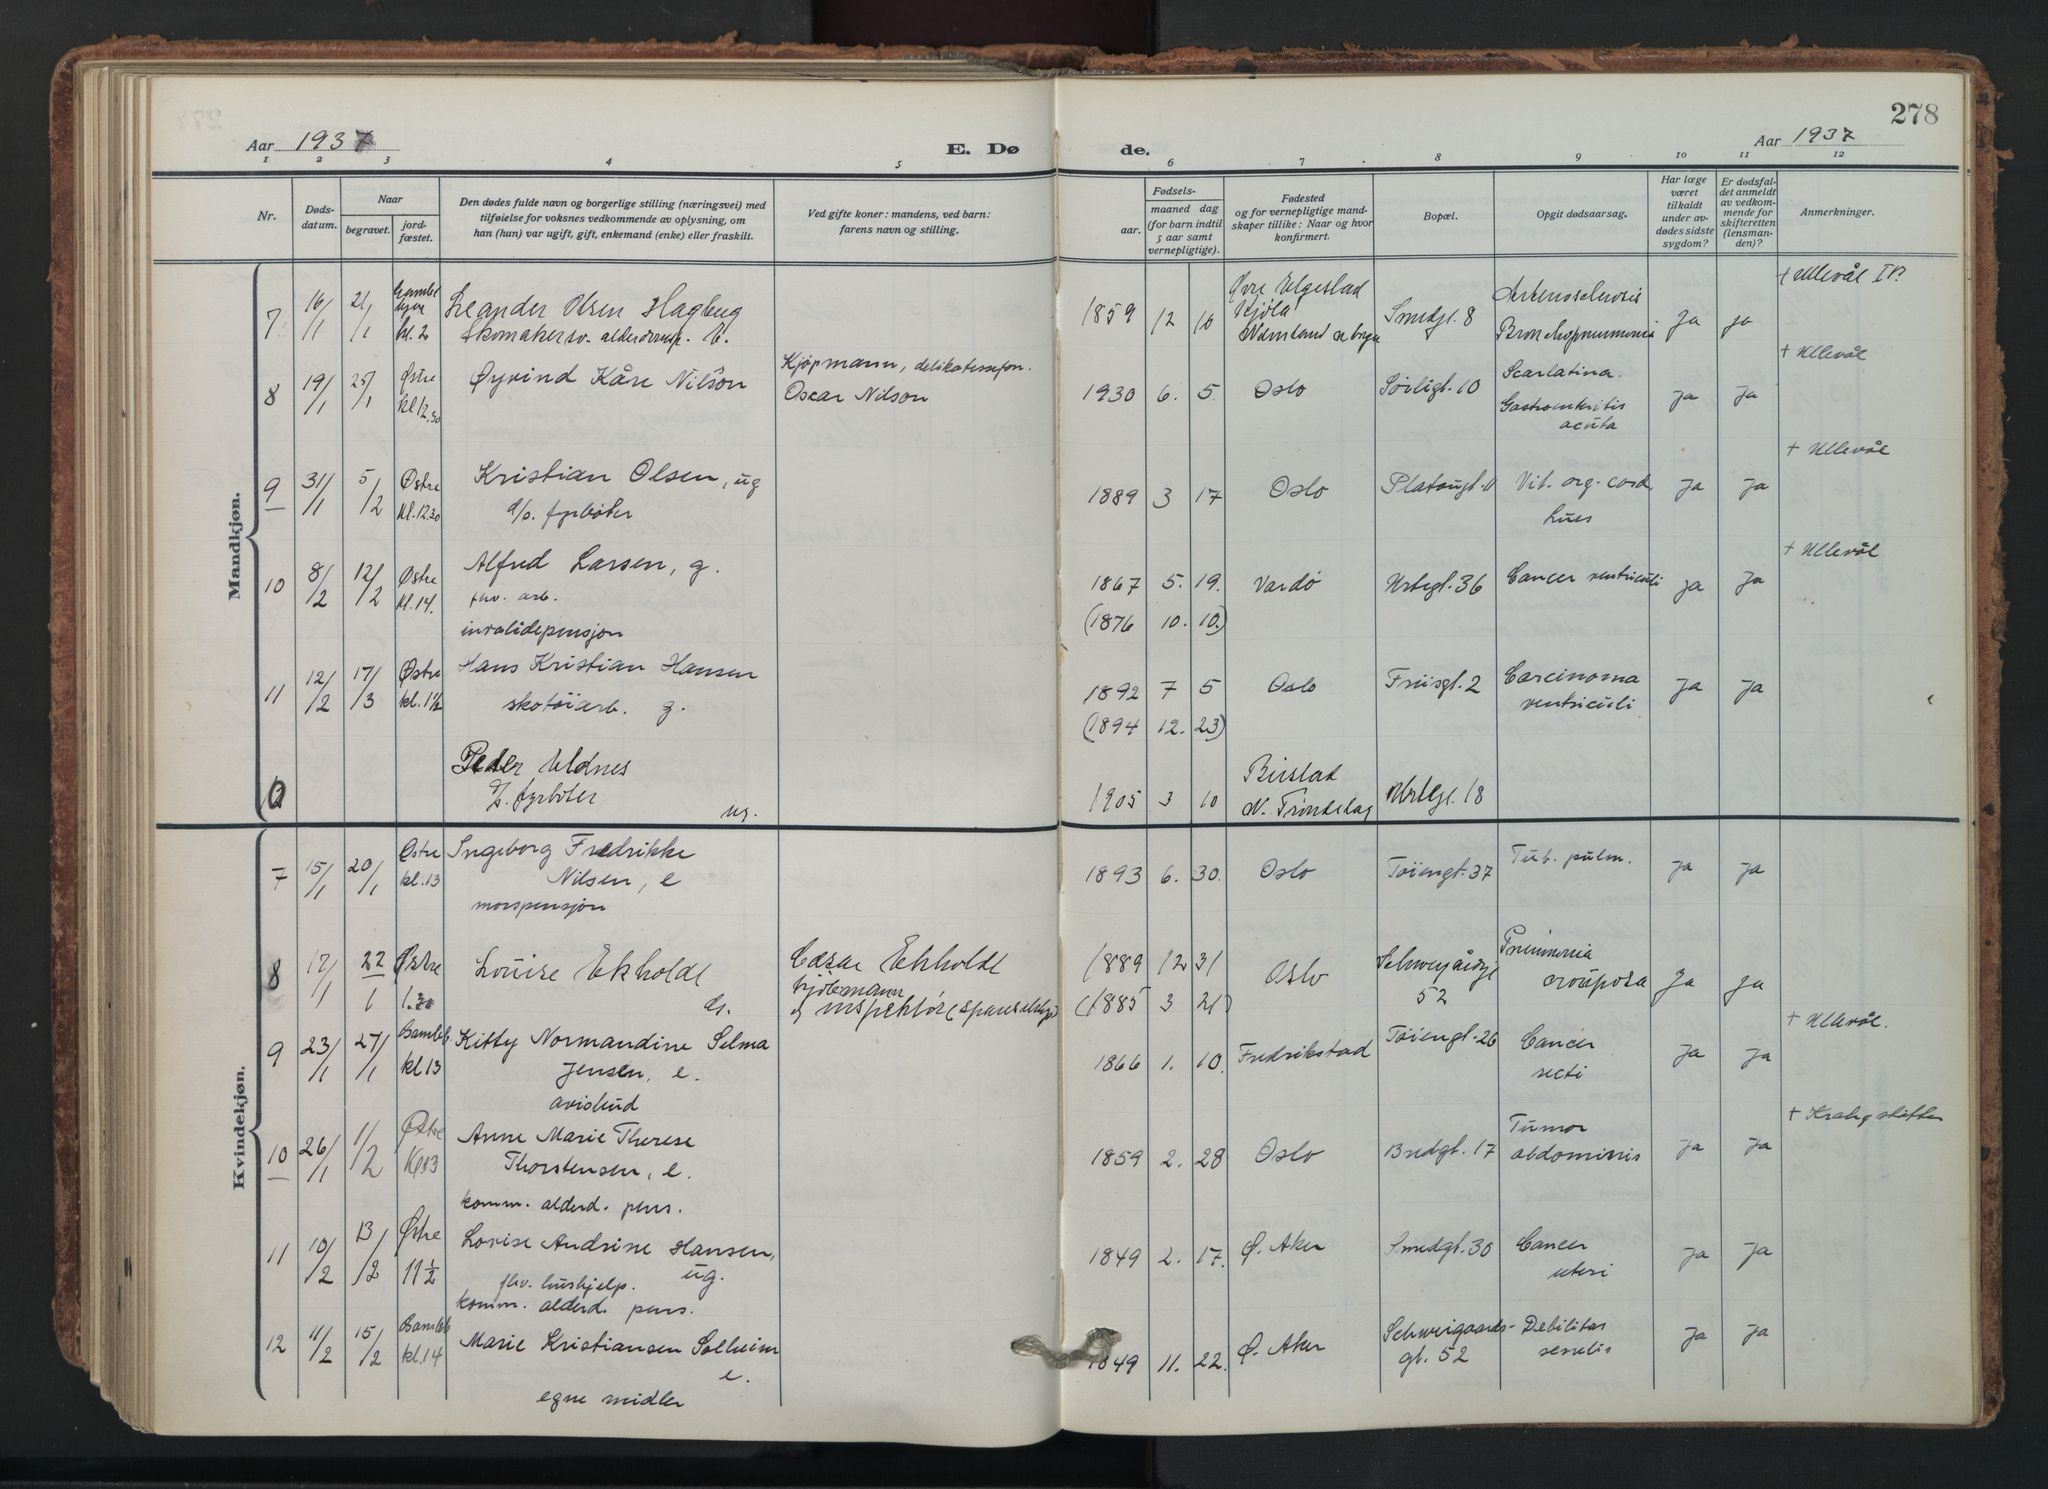 278
Aar 1937
E. Dø
de.
Aar 1937
1 2 3 4 5 6 7 8 9 10 11 12
Nr.
Dødsdatum.
Naar
begravet.
jordfæstet.
Den dødes fulde navn og borgerlige stilling (næringsvei) med
tilføielse for voksnes vedkommende av oplysning, om
han (hun) var ugift, gift, enkemand (enke) eller fraskilt.
Ved gifte koner: mandens, ved barn:
farens navn og stilling.
Fødsels-
aar.
maaned dag
(for barn indtil
5 aar samt
vernepligtige).
Fødested
og for vernepligtige mand-
skaper tillike: Naar og hvor
konfirmert.
Bopæl.
Opgit dødsaarsag.
Har læge
været
tilkaldt
under av-
dødes sidste
sygdom?
Er dødsfal-
det anmeldt
av vedkom-
mende for
skifteretten
(lensman-
den)?
Anmerkninger.
Mandkjøn.
7 16/1 21/1 kl. 2 Leander Olsen Hagbug 1859 12 10 Smedgt. 8 Ja ja + Ullevål
Skomakersv.
Bronchopneumonia
8 19/1 25/1 Østre kl 12.30 Øyvind Kåre Nilson
Kjøpmann, delikatessefon.
Oscar Nilson
1930 6. 5 Oslo Sørligt. 10 Scarlatina. Ja Ja + Ullevål
acuta
9 31/1 5/2 Østre kl. 12.30 Kristian Olsen, ug
d/s. fyrbøter
1889 3 17 Oslo Platougt. 11 Vit. org. cord Ja Ja + Ullevål
Lues
10 8/2 12/2 Østre kl. 14. Alfred Larsen, g.
fhv. arb.
invalidepensjon
1867 5. 19. Vardø Urtegt. 36 Cancer ventriculi Ja Ja + Ullevål
(1876 10. 10.)
11 12/2 17/3 Østre kl. 1 1/2 Hans Kristian Hansen
skotøiarb. g.
1892 7 5 Oslo Friisgt. 2 Carcinoma Ja Ja
ventriculi
(1894 12. 23)
0 Peder Uldnes
d/s. fyrbøter
ug.
1905 3 10 N. Trøndelag Urtegt. 18
Kvindekjøn.
7 15/1 20/1 Østre kl. 13 Ingeborg Fredrikke
Nilsen, e
morspensjon
1893 6. 30. Oslo Tøiengt. 37 Tub. pulm. Ja Ja
8 17/1 22/1 Østre 1.30 Louise Ekholdt
Cæsar Ekholdt
kjøbmann
1889 12 31 Oslo 52 Pneumonia Ja Ja
crouposa
(1885 3 21)
9 23/1 27/1 Gamleb. kl 13 Kitty Normandine Selma
Jensen, e.
avisbud
1866 1. 10. Fredrikstad Tøiengt. 26 Cancer Ja Ja + Ullevål.
recti
10 26/1 1/2 Østre Kl 13 Anne Marie Therese
Thorstensen, e.
komm. alderd. pens.
1859 2. 28 Oslo Bredgt. 17 Tumor Ja Ja
abdominis
11 10/2 13/2 Østre 11 1/2 Lovise Andrine Hansen,
fhv. hushjelp. ug.
komm. alderd. pens.
1849 2. 17. Ø. Aker Smedgt. 30 Cancer Ja Ja
uteri
12 11/2 15/2 Gamleb kl. 14 Marie Kristiansen Solheim
e.
egne midler
1849 11. 22. Ø. Aker Schweigaards-
gt. 52 Debilitas Ja Ja
senilis